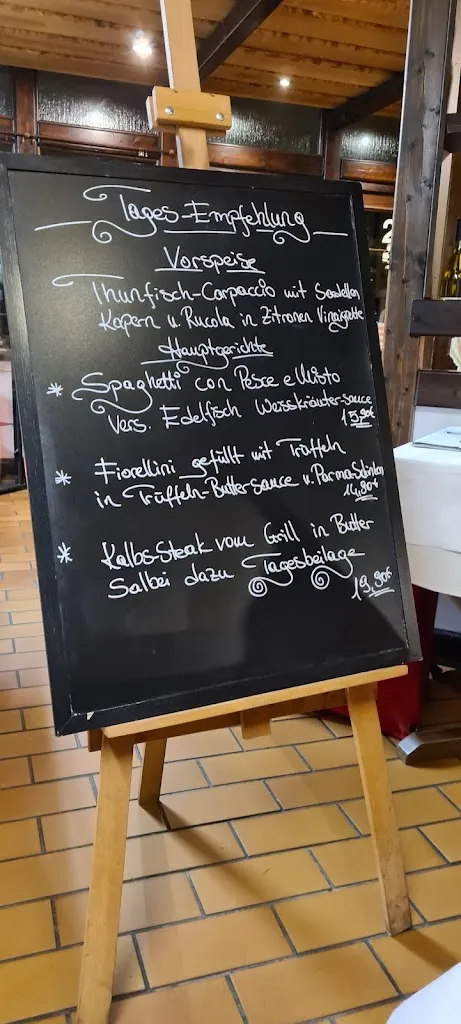 Tages-Empfehlung
Vorspeise
Thunfisch-Carpaccio mit Sardellen
Kapern u. Rucola in Zitronen Vinaigrette
Hauptgerichte
* Spaghetti con Pesce e Misto
Vers. Edelfisch Weisskräuter-sauce
15,90€
* Fiorellini gefüllt mit Trüffeln
in Trüffeln-Buttersauce u. Parma-Schinken
14,90€
* Kalbs-Steak vom Grill in Butter
Salbei dazu Tagesbeilage
19,90€